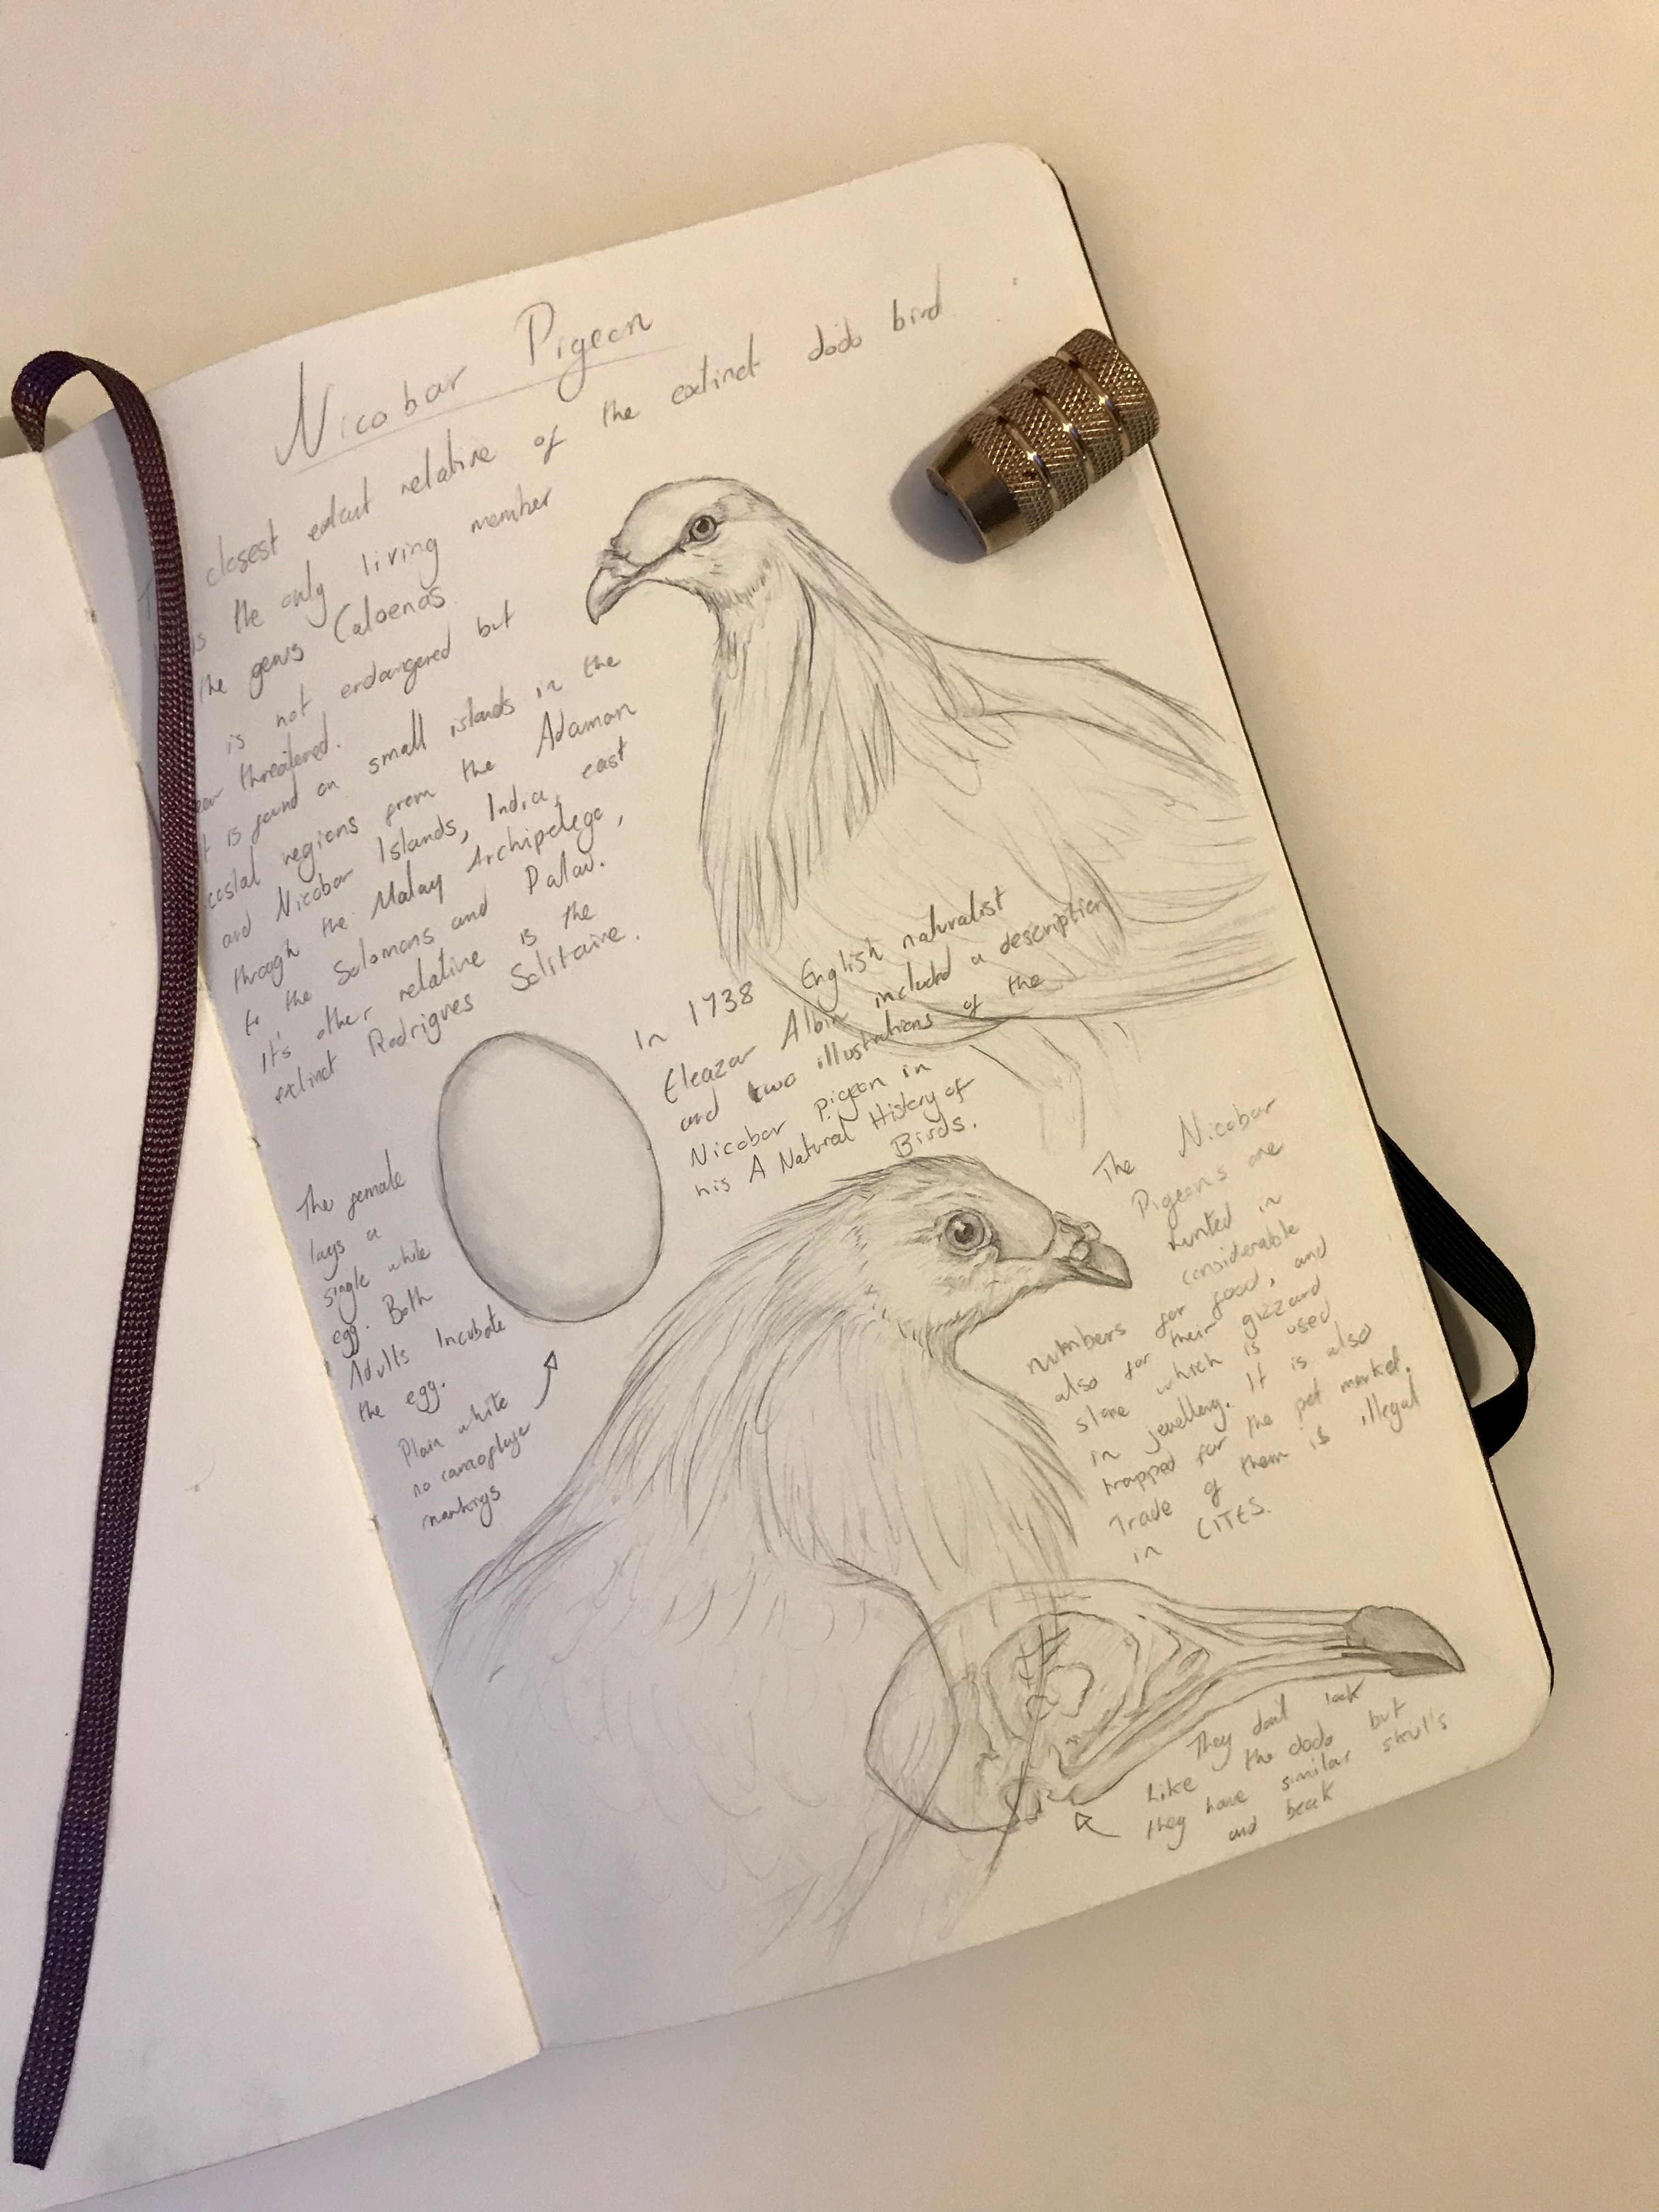 Nicobar Pigeon
closest extant relative of the extinct dodo bird.
is the only living member
the genus Caloenas
is not endangered but
near threatened.
It is found on small islands in the
costal regions from the Adaman
and Nicobar Islands, India, east
through the Malay Archipelego,
to the Solomons and Palau.
It's other relative is the
extinct Rodrigues Solitaire.
In 1738 English naturalist
Eleazar Albin included a description
and two illustrations of the
Nicobar Pigeon in
his A Natural History of
Birds.
The female
lays a
single white
egg. Both
Adults Incubate
the egg.
Plain white
no camofluge
markings
The Nicobar
Pigeons are
hunted in
considerable
numbers for food, and
also for their gizzard
stone which is used
in jewellery. It is also
trapped for the pet market.
Trade of them is illegal
in CITES.
They don't look
Like the dodo but
they have similar skulls
and beak